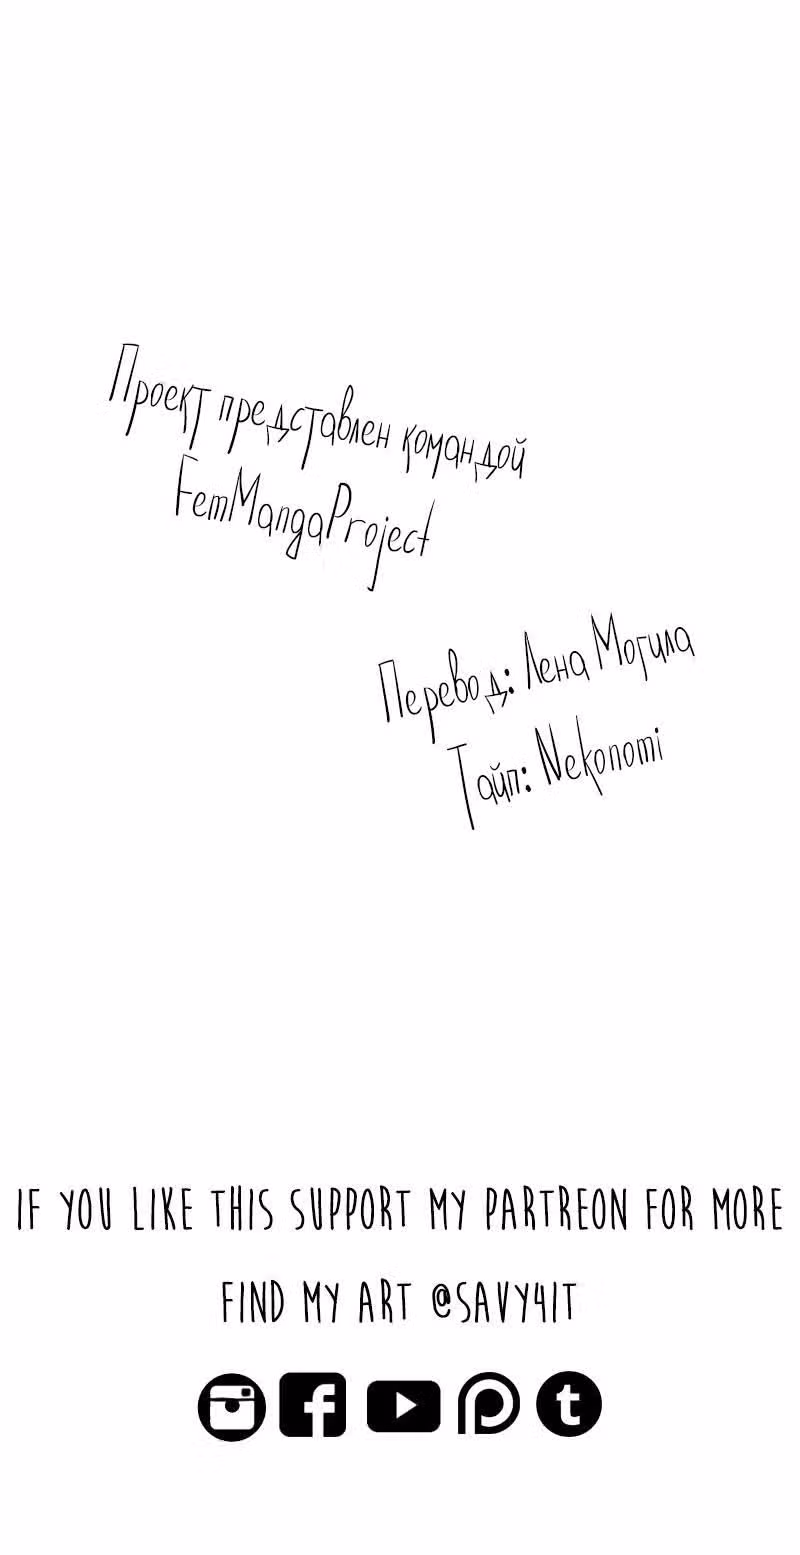 Проект представлен командой
FemMangaProject
Перевод: Лена Могила
Тайп: Nekonomi
IF YOU LIKE THIS SUPPORT MY PARTREON FOR MORE
FIND MY ART @SAVY4IT